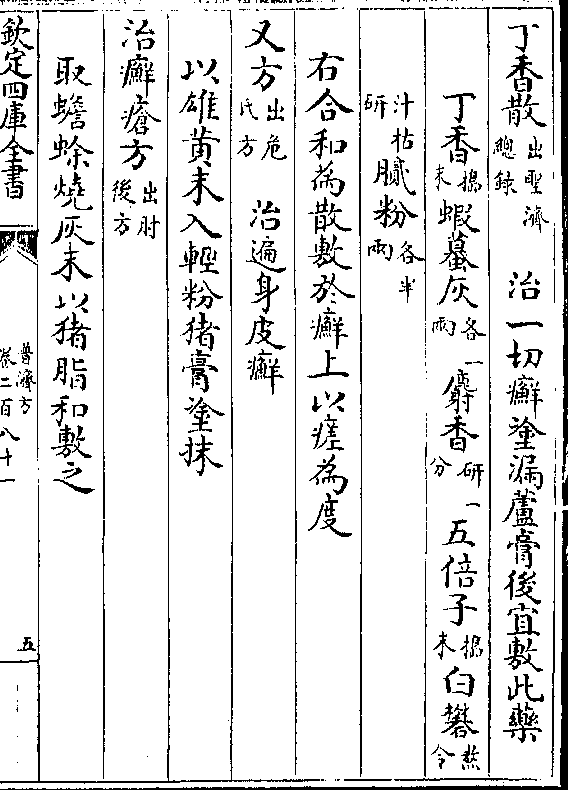 丁香散出聖濟總録　治一切癬塗漏蘆膏後宜敷此藥
丁香搗末蝦蟇灰各一兩麝香研一分五倍子搗末白礬熬令
汁枯研膩粉各半兩
右合和為散敷於癬上以瘥為度
又方出危氏方　治遍身皮癬
以雄黄末入輕粉猪膏塗抹
治癬瘡方出肘後方
取蟾蜍燒灰末以猪脂和敷之
欽定四庫全書
普濟方卷二百八十一
五